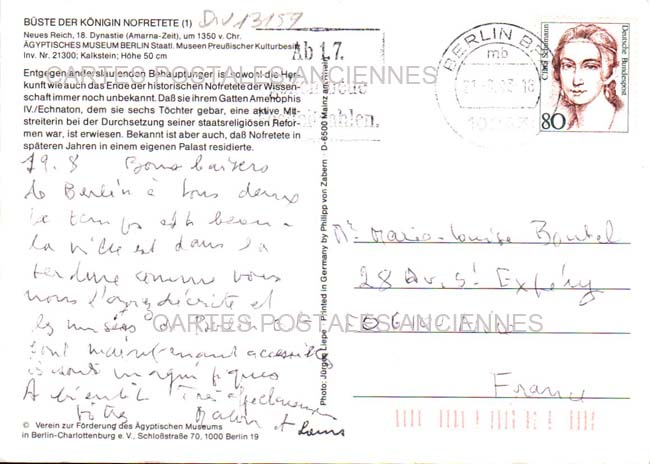 BÜSTE DER KÖNIGIN NOFRETETE (1)
Neues Reich, 18. Dynastie (Amarna-Zeit), um 1350 v. Chr.
ÄGYPTISCHES MUSEUM BERLIN Staatl. Museen Preußischer Kulturbesitz
Inv. Nr. 21300; Kalkstein; Höhe 50 cm
Entgegen anders lautenden Behauptungen ist sowohl die Her-
kunft wie auch das Ende der historischen Nofretete der Wissen-
schaft immer noch unbekannt. Daß sie ihrem Gatten Amenophis
IV./Echnaton, dem sie sechs Töchter gebar, eine aktive Mit-
streiterin bei der Durchsetzung seiner staatsreligiösen Refor-
men war, ist erwiesen. Bekannt ist aber auch, daß Nofretete in
späteren Jahren in einem eigenen Palast residierte.
19.8 Bons baisers
de Berlin à tous deux
Le temps est beau
la ville est dans la
comme vous
nous l'avez décrite et
les musées de Berlin Est
sont maintenant accessibles
ils sont magnifiques
A bientôt Très affectueusement
Vôtres
et Louis
© Verein zur Förderung des Ägyptischen Museums
in Berlin-Charlottenburg e. V., Schloßstraße 70, 1000 Berlin 19
Photo: Jürgen Liepe Printed in Germany by Philipp von Zabern · D-6500 Mainz am Rhein
Ab 1.7.
BERLIN
mb
Clara Schumann
Deutsche Bundespost
80
Marie-Louise
28 Av. St Exupéry
France
CARTES POSTALES ANCIENNES
CARTES POSTALES ANCIENNES